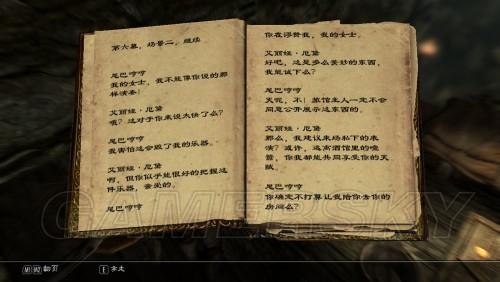 第六幕，场景二，继续
尼巴哼哼
我的女士，我不能像你说的那
样演奏！
艾丽丝·厄黛
哦？这对于你来说太快了么？
尼巴哼哼
我害怕这会毁了我的乐器。
艾丽丝·厄黛
啊，但你似乎能很好的把握这
件乐器，亲爱的。
尼巴哼哼
你在浮赞我，我的女士。
艾丽丝·厄黛
好吧，这是多么美妙的东西，
我能试下么？
尼巴哼哼
天呢，不！旅馆主人一定不会
同意公开展示这东西的。
艾丽丝·厄黛
那么，我建议来场私下的表
演？或许，远离酒馆里的喧
嚣，你我都能共同享受你的天
赋。
尼巴哼哼
你确定不打算让我给你去你的
房间么？
GAMERSKY
翻页
E 拿走